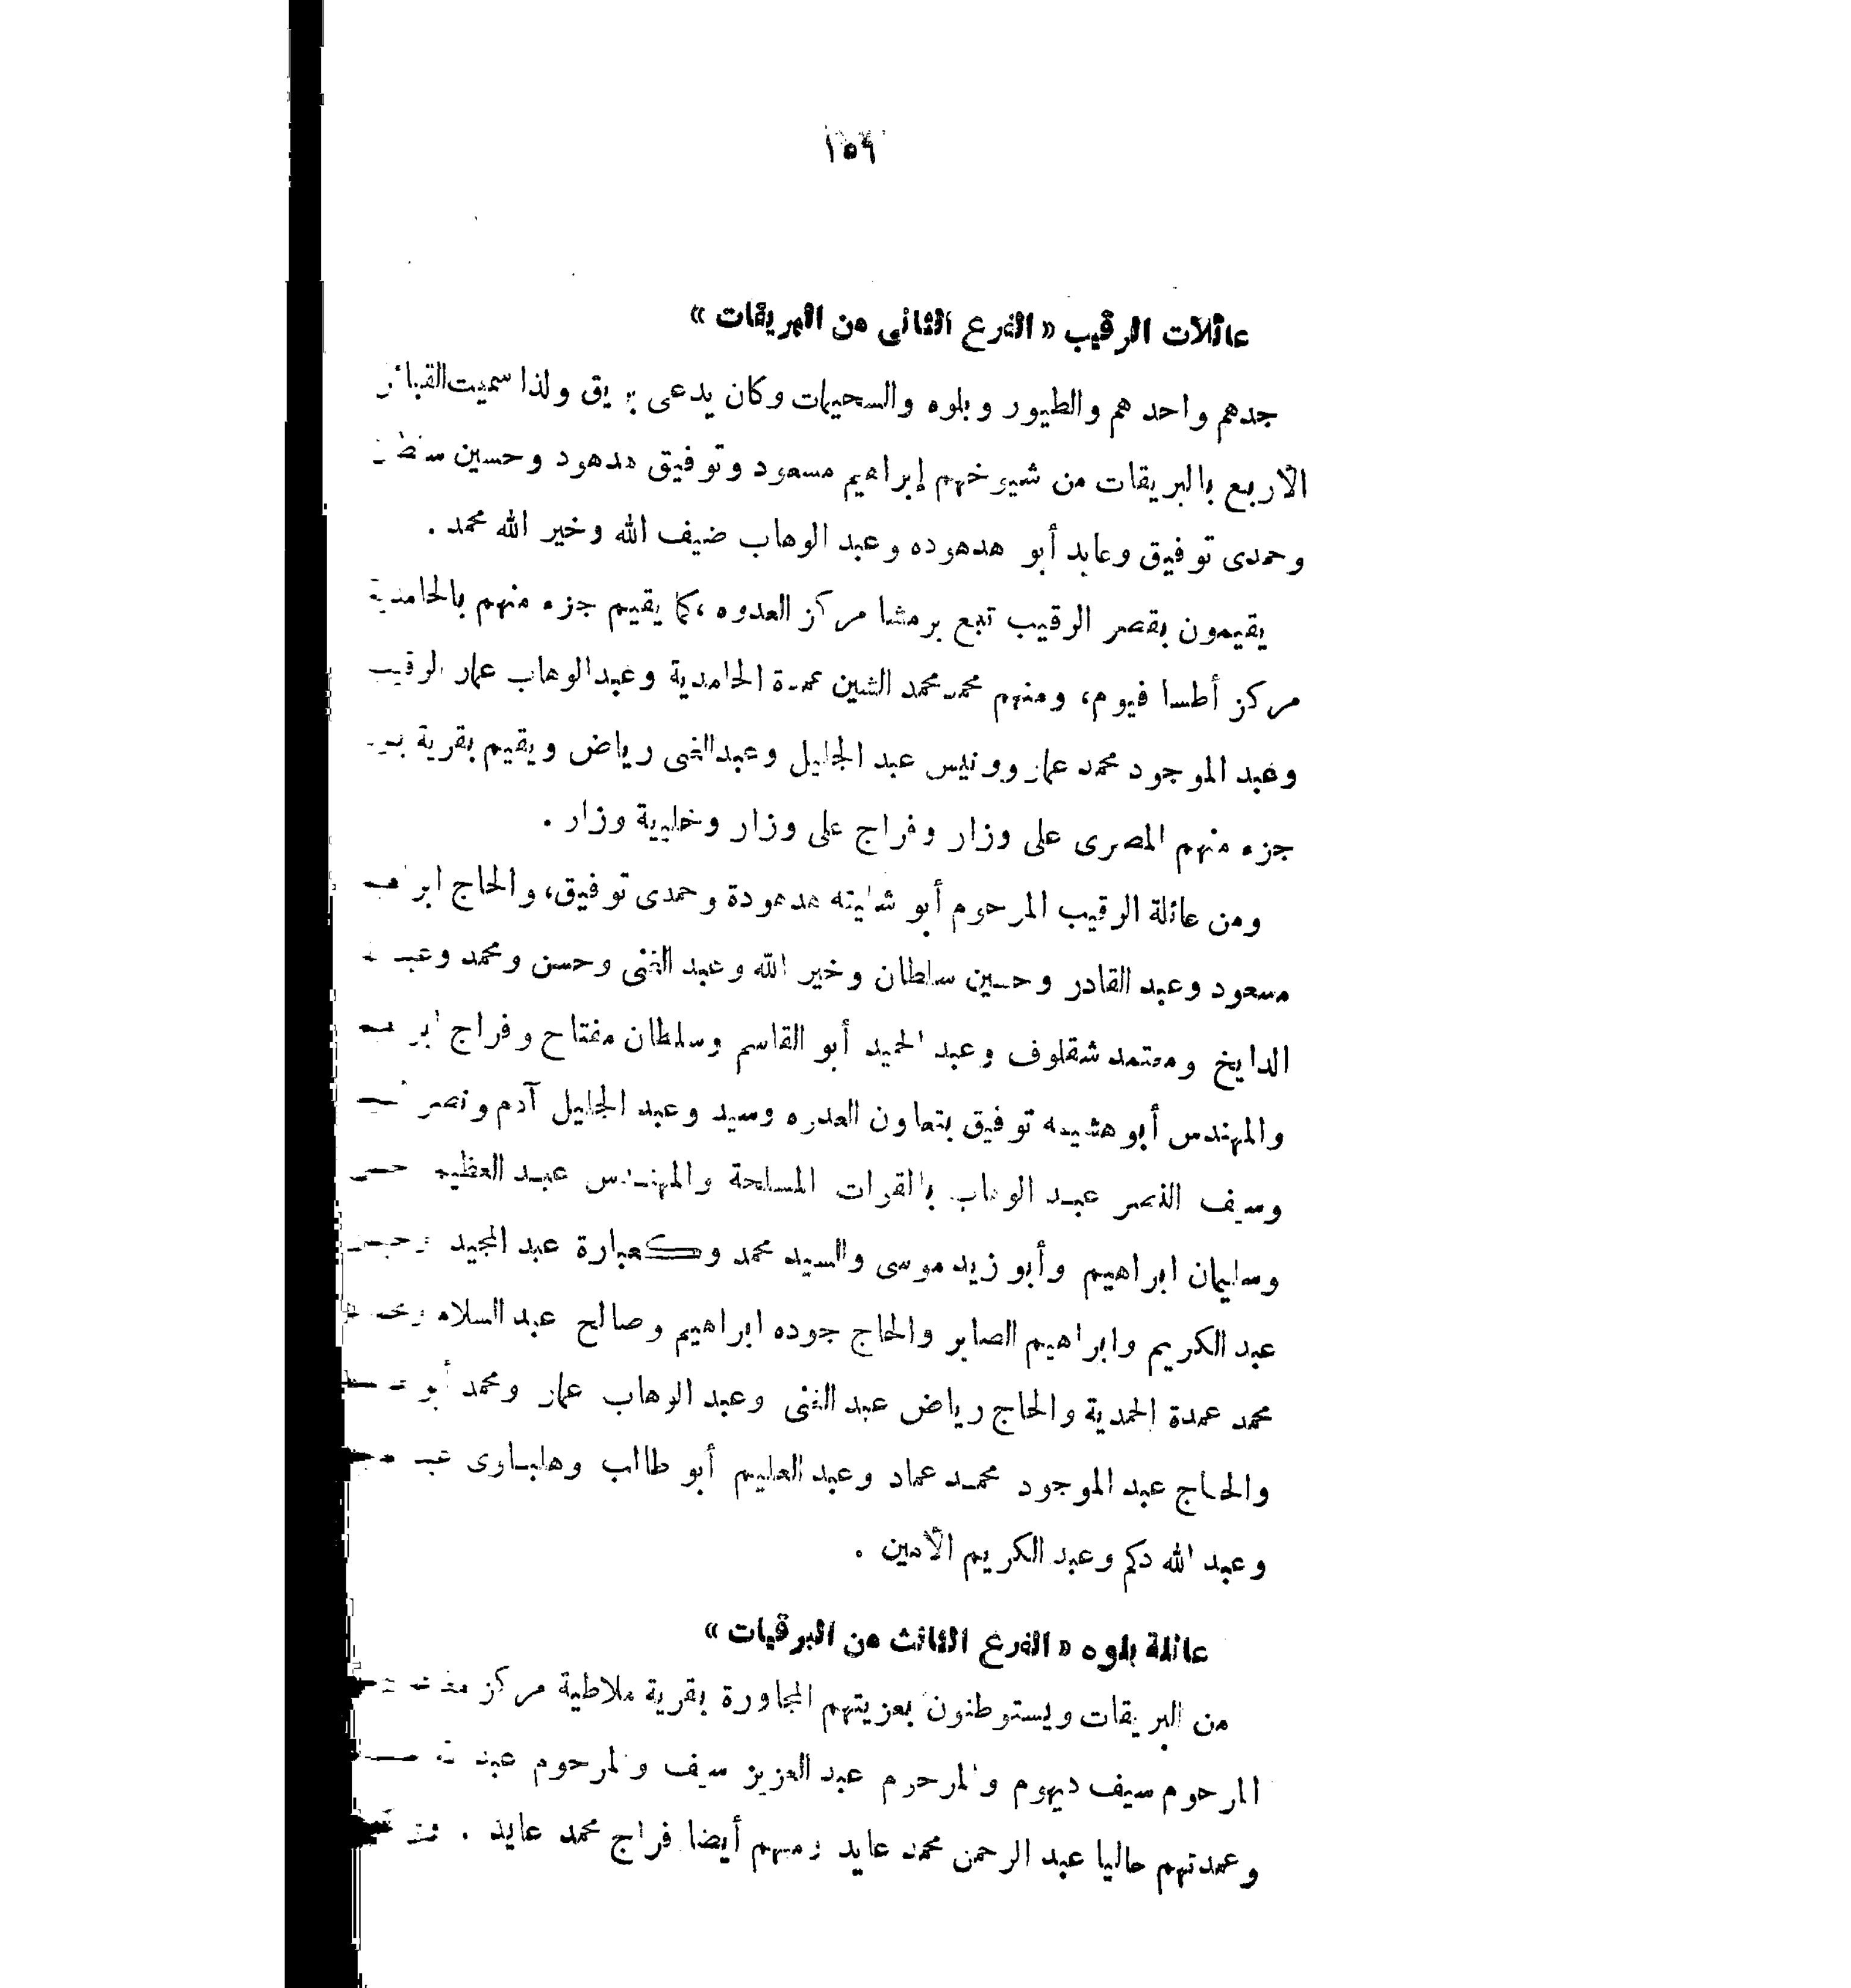 ١٥٩
عائلات الرقيب « الفرع الثانى من البريقات »
جدهم واحد هم والطيور وبلوه والسحيمات وكان يدعى بريق ولذا سميت القبائل
الأربع بالبريقات من شيوخهم إبراهيم مسعود وتوفيق هدهود وحسين سلطان
وحمدى توفيق وعابد أبو هدهوده وعبد الوهاب ضيف الله وخير الله محمد .
يقيمون بقصر الرقيب تبع برمشا مركز العدوه ، كما يقيم جزء منهم بالحامدية
مركز أطسا فيوم ، ومنهم محمد محمد الشين عمدة الحامدية وعبد الوهاب عمار الرقيب
وعبد الموجود محمد عمار وونيس عبد الجليل وعبد الغنى رياض ويقيم بقرية
جزء منهم المصرى على وزار وفراج على وزار وخليية وزار .
ومن عائلة الرقيب المرحوم أبو شليته هدهودة وحمدى توفيق ، والحاج ابراهيم
مسعود وعبد القادر وحسين سلطان وخير الله وعبد الغنى وحسن ومحمد
الدايخ ومعتمد شقلوف وعبد الحميد أبو القاسم وسلطان مفتاح وفراج ابراهيم
والمهندس أبو هشيمه توفيق بتعاون العدوه وسيد وعبد الجليل آدم ونصر
وسيف النصر عبد الوهاب بالقوات المسلحة والمهندس عبد العظيم
وسليمان ابراهيم وأبو زيد موسى والسيد محمد وكعبارة عبد المجيد
عبد الكريم وابراهيم الصابر والحاج جوده ابراهيم وصالح عبد السلام
محمد عمدة الحمدية والحاج رياض عبد الغنى وعبد الوهاب عمار ومحمد أبو
والحاج عبد الموجود محمد عماد وعبد العليم أبو طالب وهلباوى
وعبد الله دكم وعبد الكريم الأمين .
عائلة بلوه « الفرع الثالث من البرقيات »
من البريقات ويستوطنون بعزبتهم المجاورة بقرية ملاطية مركز
المرحوم سيف ديهوم والمرحوم عبد العزيز سيف والمرحوم
وعمدتهم حاليا عبد الرحمن محمد عايد ومنهم أيضا فراج محمد عايد .